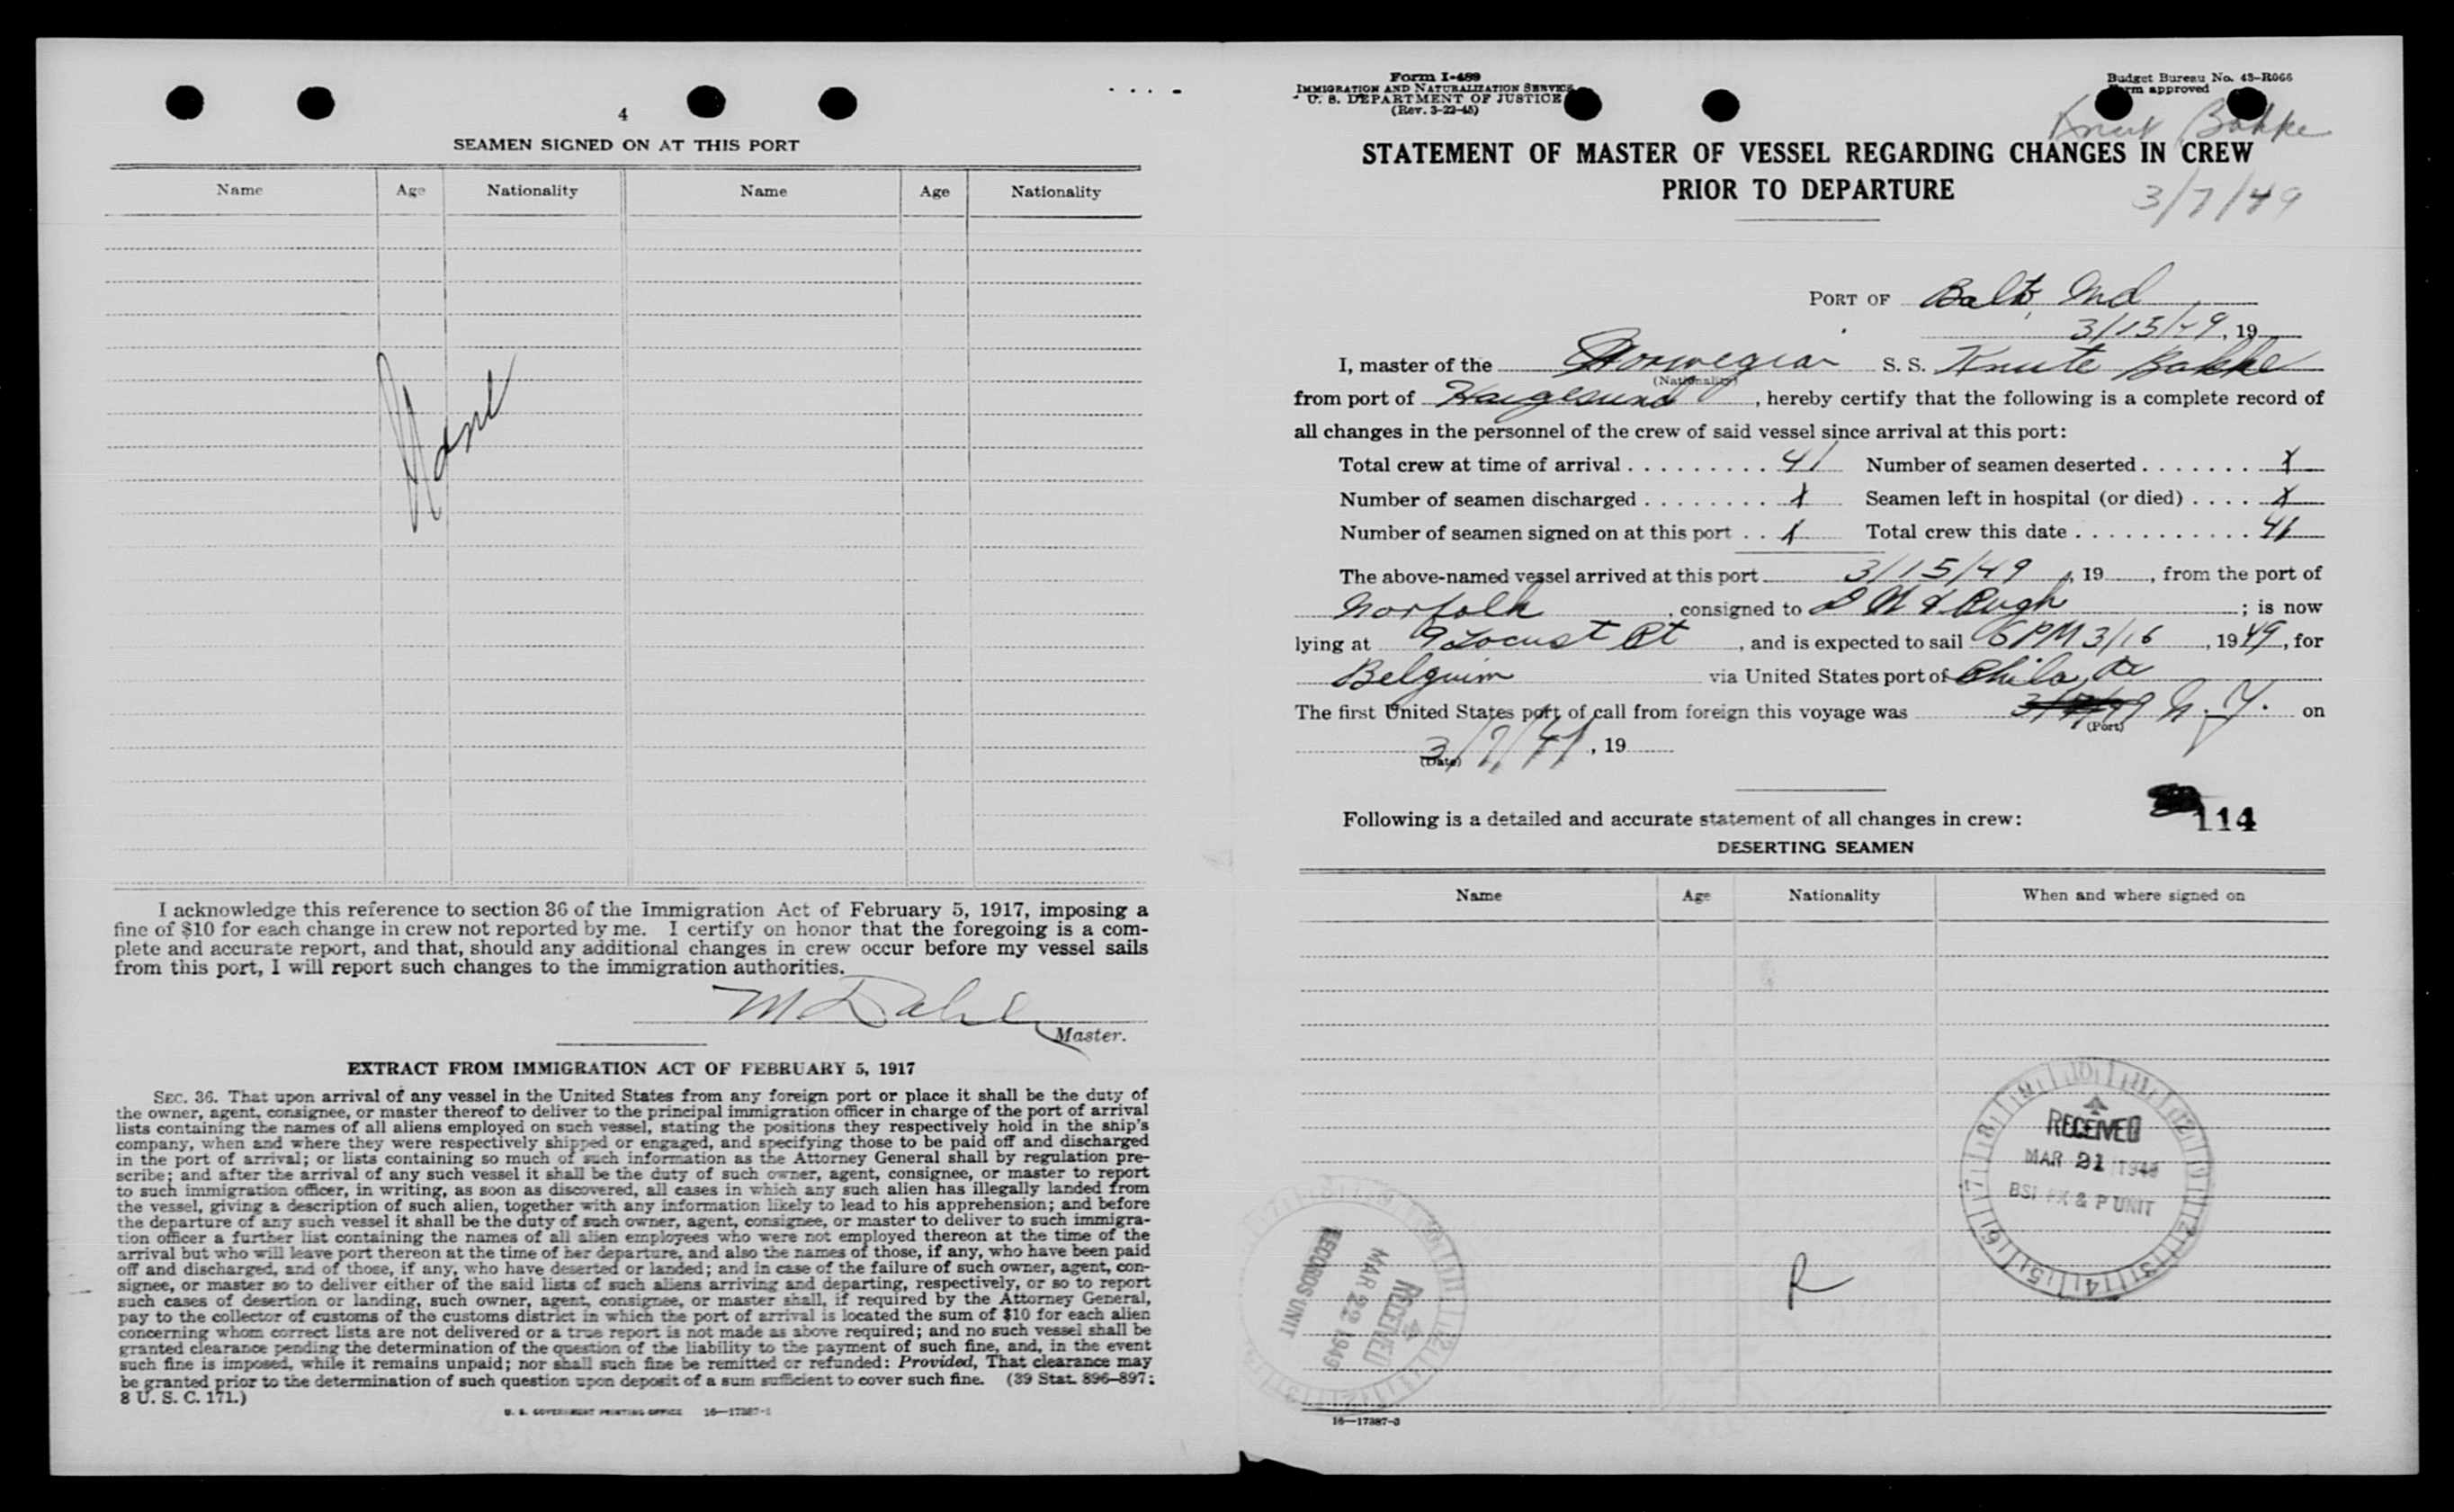 4
SEAMEN SIGNED ON AT THIS PORT
Name Age Nationality Name Age Nationality
None
I acknowledge this reference to section 36 of the Immigration Act of February 5, 1917, imposing a
fine of $10 for each change in crew not reported by me. I certify on honor that the foregoing is a com-
plete and accurate report, and that, should any additional changes in crew occur before my vessel sails
from this port, I will report such changes to the immigration authorities.
M Dahl
Master.
EXTRACT FROM IMMIGRATION ACT OF FEBRUARY 5, 1917
SEC. 36. That upon arrival of any vessel in the United States from any foreign port or place it shall be the duty of
the owner, agent, consignee, or master thereof to deliver to the principal immigration officer in charge of the port of arrival
lists containing the names of all aliens employed on such vessel, stating the positions they respectively hold in the ship's
company, when and where they were respectively shipped or engaged, and specifying those to be paid off and discharged
in the port of arrival; or lists containing so much of such information as the Attorney General shall by regulation pre-
scribe; and after the arrival of any such vessel it shall be the duty of such owner, agent, consignee, or master to report
to such immigration officer, in writing, as soon as discovered, all cases in which any such alien has illegally landed from
the vessel, giving a description of such alien, together with any information likely to lead to his apprehension; and before
the departure of any such vessel it shall be the duty of such owner, agent, consignee, or master to deliver to such immigra-
tion officer a further list containing the names of all alien employees who were not employed thereon at the time of the
arrival but who will leave port thereon at the time of her departure, and also the names of those, if any, who have been paid
off and discharged, and of those, if any, who have deserted or landed; and in case of the failure of such owner, agent, con-
signee, or master so to deliver either of the said lists of such aliens arriving and departing, respectively, or so to report
such cases of desertion or landing, such owner, agent, consignee, or master shall, if required by the Attorney General,
pay to the collector of customs of the customs district in which the port of arrival is located the sum of $10 for each alien
concerning whom correct lists are not delivered or a true report is not made as above required; and no such vessel shall be
granted clearance pending the determination of the question of the liability to the payment of such fine, and, in the event
such fine is imposed, while it remains unpaid; nor shall such fine be remitted or refunded: Provided, That clearance may
be granted prior to the determination of such question upon deposit of a sum sufficient to cover such fine. (39 Stat. 896–897;
8 U. S. C. 171.)
U. S. GOVERNMENT PRINTING OFFICE 16—17387-1
Form I-489
IMMIGRATION AND NATURALIZATION SERVICE
U. S. DEPARTMENT OF JUSTICE
(Rev. 3-22-45)
Budget Bureau No. 43-R066
Form approved
Knut Bakke
STATEMENT OF MASTER OF VESSEL REGARDING CHANGES IN CREW
PRIOR TO DEPARTURE
3/7/49
PORT OF Balto, Md
3/15/49, 19
I, master of the Norwegian S. S. Knute Bakke
(Nationality)
from port of Haugesund, hereby certify that the following is a complete record of
all changes in the personnel of the crew of said vessel since arrival at this port:
Total crew at time of arrival . . . . . . . . . 41 Number of seamen deserted . . . . . . . . X
Number of seamen discharged . . . . . . . . . X Seamen left in hospital (or died) . . . . X
Number of seamen signed on at this port . . X Total crew this date . . . . . . . . . . . 41
The above-named vessel arrived at this port 3/15/49, 19, from the port of
Norfolk, consigned to ; is now
lying at 9 Locust Pt, and is expected to sail 6 PM 3/16, 1949, for
Belguim via United States port of Phila, Pa
The first United States port of call from foreign this voyage was N.Y. on
(Port)
3/7/49, 19
(Date)
Following is a detailed and accurate statement of all changes in crew:
114
DESERTING SEAMEN
Name Age Nationality When and where signed on
RECEIVED
MAR 21 1949
BSI FX & P UNIT
R
RECEIVED
MAR 22 1949
RECORDS UNIT
16—17387-3